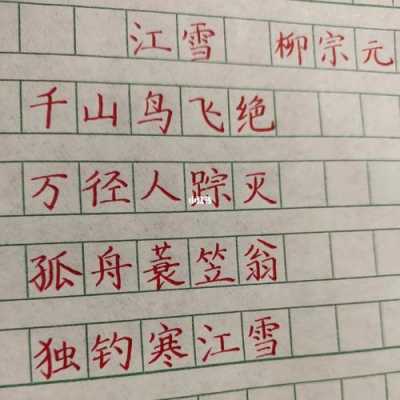 江雪 柳宗元
千山鸟飞绝
万径人踪灭
孤舟蓑笠翁
独钓寒江雪